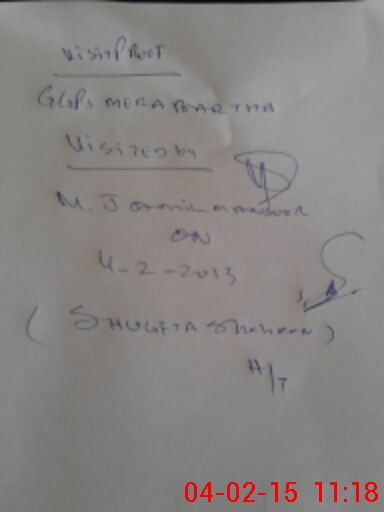 Visit Proof
GGPS MERA BARTHA
VISITED by
M. Jamil MANSOOR
ON
4-2-2013
(SHUGFTA Shaheen)
H/T
04-02-15 11:18